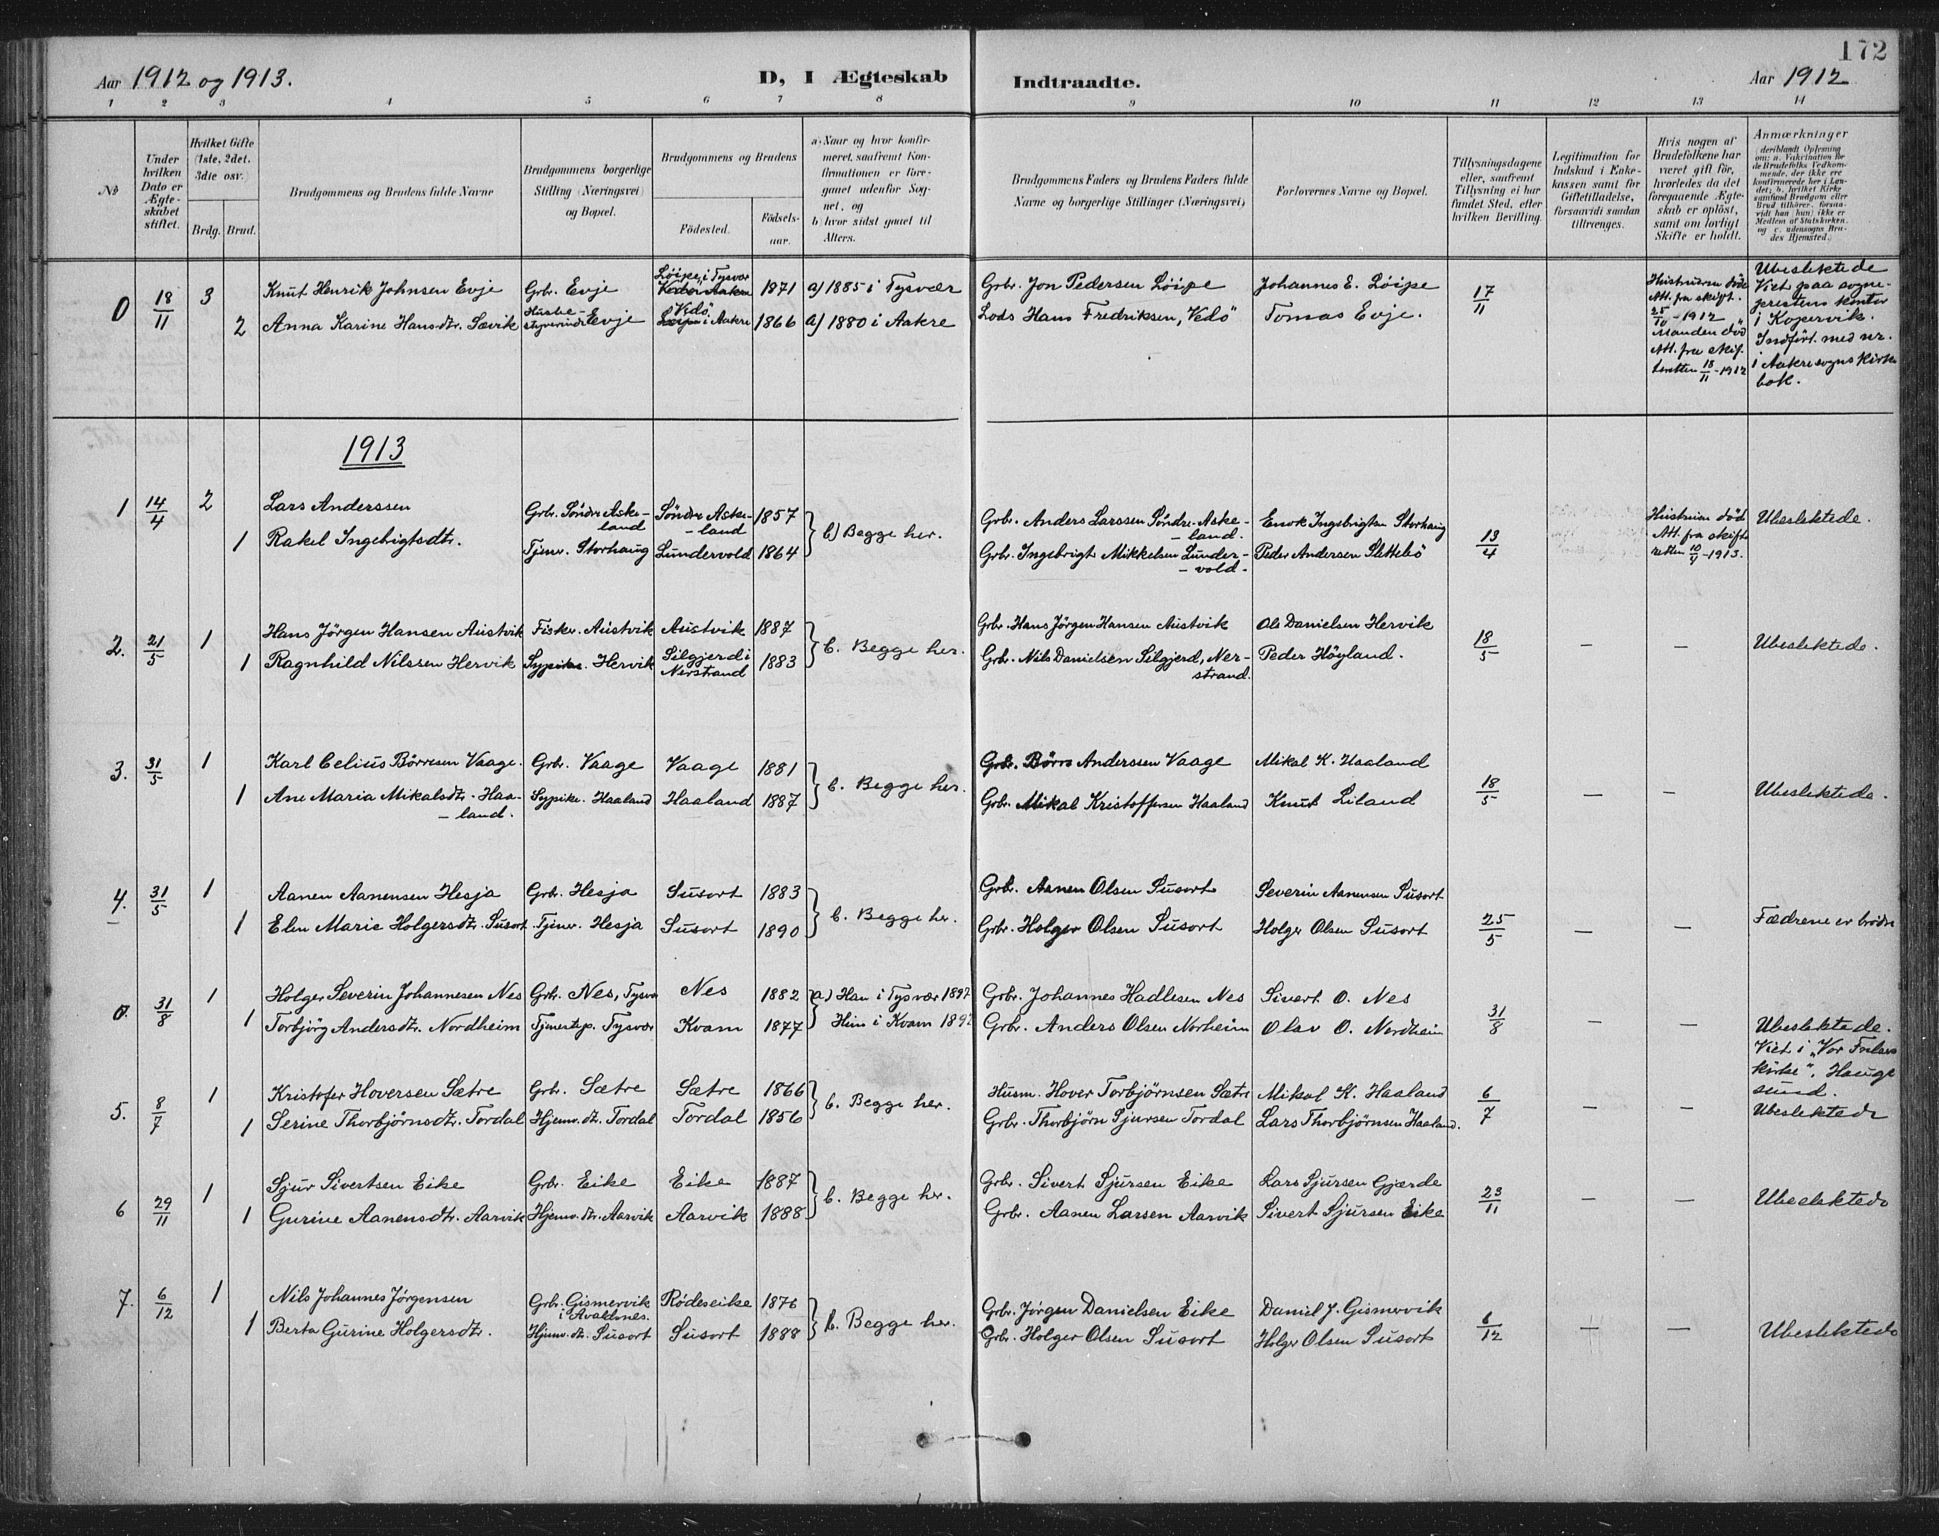 172
Aar 1912 og 1913.
D, I Ægteskab
Indtraadte.
Aar 1912
1 2 3 4 5 6 7 8 9 10 11 12 13 14
No
Under hvilken Dato er Ægteskabet stiftet.
Hvilket Gifte (1ste, 2det, 3die osv.
Brdg. Brud.
Brudgommens og Brudens fulde Navne
Brudgommens borgerlige Stilling (Næringsvei) og Bopæl.
Brudgommens og Brudens
Fødested.
Fødselsaar.
a) Naar og hvor konfirmeret, saafremt Konfirmationen er foregaaet udenfor Sognet, og
b) hvor sidst gaaet til Alters.
Brudgommens Faders og Brudens Faders fulde Navne og borgerlige Stillinger (Næringsvei)
Forlovernes Navne og Bopæl.
Tillysningsdagene eller, saafremt Tillysning ei har fundet Sted, efter hvilken Bevilling.
Legitimation for Indskud i Enkekassen samt for Giftetilladelse, forsaavidt saadan tiltrænges.
Hvis nogen af Brudefolkene har været gift før, hvorledes da det foregaaende Ægteskab er opløst, samt om lovligt Skifte er holdt.
Anmærkninger
(deriblandt Oplysning om: a. Vakcination for de Brudefolks Vedkommende, der ikke ere konfirmerede her i Landet; b. hvilket Kirkesamfund Brudgom eller Brud tilhører, forsaavidt han (hun) ikke er Medlem af Statskirken, og c. udensogns Brudes Hjemsted.)
0 18/11 3 Knut Henrik Johnsen Evje Grb. Evje Løipe i Tysvær 1871 a) 1885 i Tysvær Grb. Jon Pedersen Løipe Johannes E. Løipe 17/11
2 Anna Karine Hansdtr. Sævik Husbestyrerinde Evje Vedö i Aakre 1866 a) 1880 i Aakre Lods Hans Fredriksen, "Vedö" Tomas Evje.
Hustruen död
Att. fra skift.
25/10 - 1912
Manden död
Att. fra skif-
teretten 18/11 - 1912
Ubeslektede
Viet paa sogne-
prestens kontor
i Kopervik.
Indfört med nr.
i Aakre sogns kirke
bok.
1913
1 14/4 2 Lars Anderssen Grb. Söndre Aske- Söndre Aske- 1857 Grb. Anders Larssen Söndre Aske- Enok Ingebrigtsen Storhaug Hustruen död Ubeslektede.
land land land.
1 Rakel Ingebrigtsdtr. Tjener. Storhaug Lundervold 1864 b) Begge her. Grb. Ingebrigt Mikkelsen Lunder- Peder Andersen Slettebö 13/4 Att. fra skift
vold. retten - 1913.
2. 21/5 1 Hans Jörgen Hansen Austvik Fisker. Austvik Austvik 1887 Grb. Hans Jörgen Hansen Austvik Ole Danielsen Hervik 18/5 — — Ubeslektede.
1 Ragnhild Nilssen Hervik Sypike. Hervik Silgjerd i 1883 b. Begge her. Grb. Nils Danielsen Silgjerd, Ner- Peder Höyland.
Nerstrand strand.
3. 31/5 1 Karl Celius Börresen Vaage. Grb. Vaage Vaage 1881 Grb. Börre Anderssen Vaage Mikal K. Haaland
1 Ane Maria Mikalsdtr. Haa- Sypike. Haaland Haaland 1887 b. Begge her. Grb. Mikal Kristoffersen Haaland Knut Liland 18/5 — — Ubeslektede.
land.
4. 31/5 1 Aanen Aanensen Hesja Grb. Hesja Susort 1883 Grb. Aanen Olsen Susort Severin Aanensen Susort
1 Elen Marie Holgersdtr. Susort. Tjener. Hesja Susort 1890 b. Begge her. Grb. Holger Olsen Susort Holger Olsen Susort 25/5 — — Fædrene er brödre
0. 31/8 1 Holger Severin Johannesen Nes Grb. Nes, Tysvær Nes 1882 a) Han i Tysvær 1897 Grb. Johannes Hadlesen Nes Sivert O. Nes 31/8
1 Torbjörg Andersdtr. Nordheim Tjenestep. Tysvær Kvam 1877 Hun i Kvam Grb. Anders Olsen Norheim Olav O. Nordheim — — Ubeslektede.
Viet i "Vor Frelsers
kirke", Hauge
sund.
5. 8/7 1 Kristofer Hoversen Sætre Grb. Sætre Sætre 1866 Husm. Hover Torbjørnsen Sætre Mikal K. Haaland 6/7
1 Serine Thorbjørnsdtr. Tordal Hjemv. dtr. Tordal Tordal 1856 b. Begge her. Grb. Thorbjørn Sjursen Tordal Lars Thorbjørnsen Haaland. — — Ubeslektede
6 29/11 1 Sjur Sivertsen Eike Grb. Eike Eike 1887 Grb. Sivert Sjursen Eike Lars Sjursen Gjærde 23/11
1 Gurine Aanensdtr. Aarvik Hjemv. dtr. Aarvik Aarvik 1888 b. Begge her. Grb. Aanen Larsen Aarvik Sivert Sjursen Eike — — Ubeslektede
7. 6/12 1 Nils Johannes Jørgensen Grb. Gismervik Rödeseike 1876 Grb. Jørgen Danielsen Eike Daniel J. Gismervik
i Avaldsnes.
1 Berta Gurine Holgersdtr. Hjemv. dtr. Susort Susort 1888 b. Begge her. Grb. Holger Olsen Susort Holger Olsen Susort 6/12 — — Ubeslektede